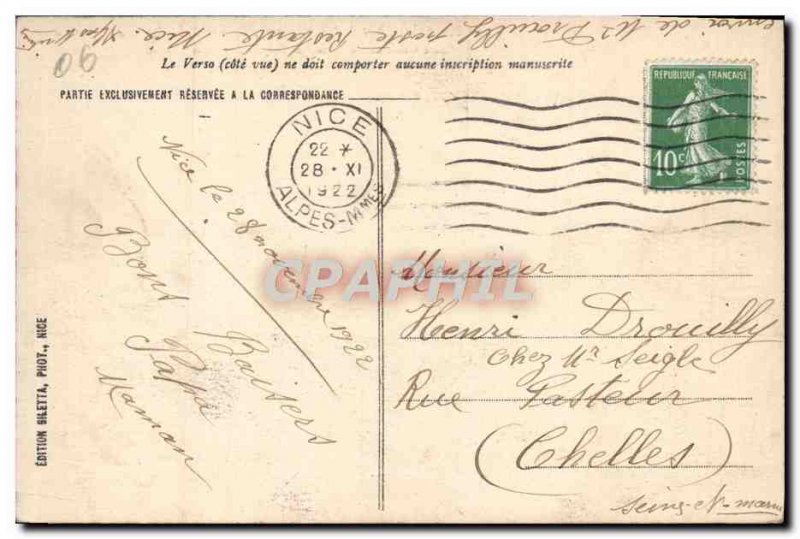 envoi de Mr Drouilly poste Restante Nice. Alpes Mmes
06
Le Verso (côté vue) ne doit comporter aucune inscription manuscrite
PARTIE EXCLUSIVEMENT RÉSERVÉE A LA CORRESPONDANCE
NICE
22 *
28 · XI
1922
ALPES-MMES
RÉPUBLIQUE FRANÇAISE
10c
POSTES
Nice le 28 novembre 1922
Bons Baisers
Papa
Maman
Monsieur
Henri Drouilly
chez Mr Seigle
Rue Pasteur
(Chelles)
Seine-et-marne
ÉDITION GILETTA, PHOT., NICE
CPAPHIL